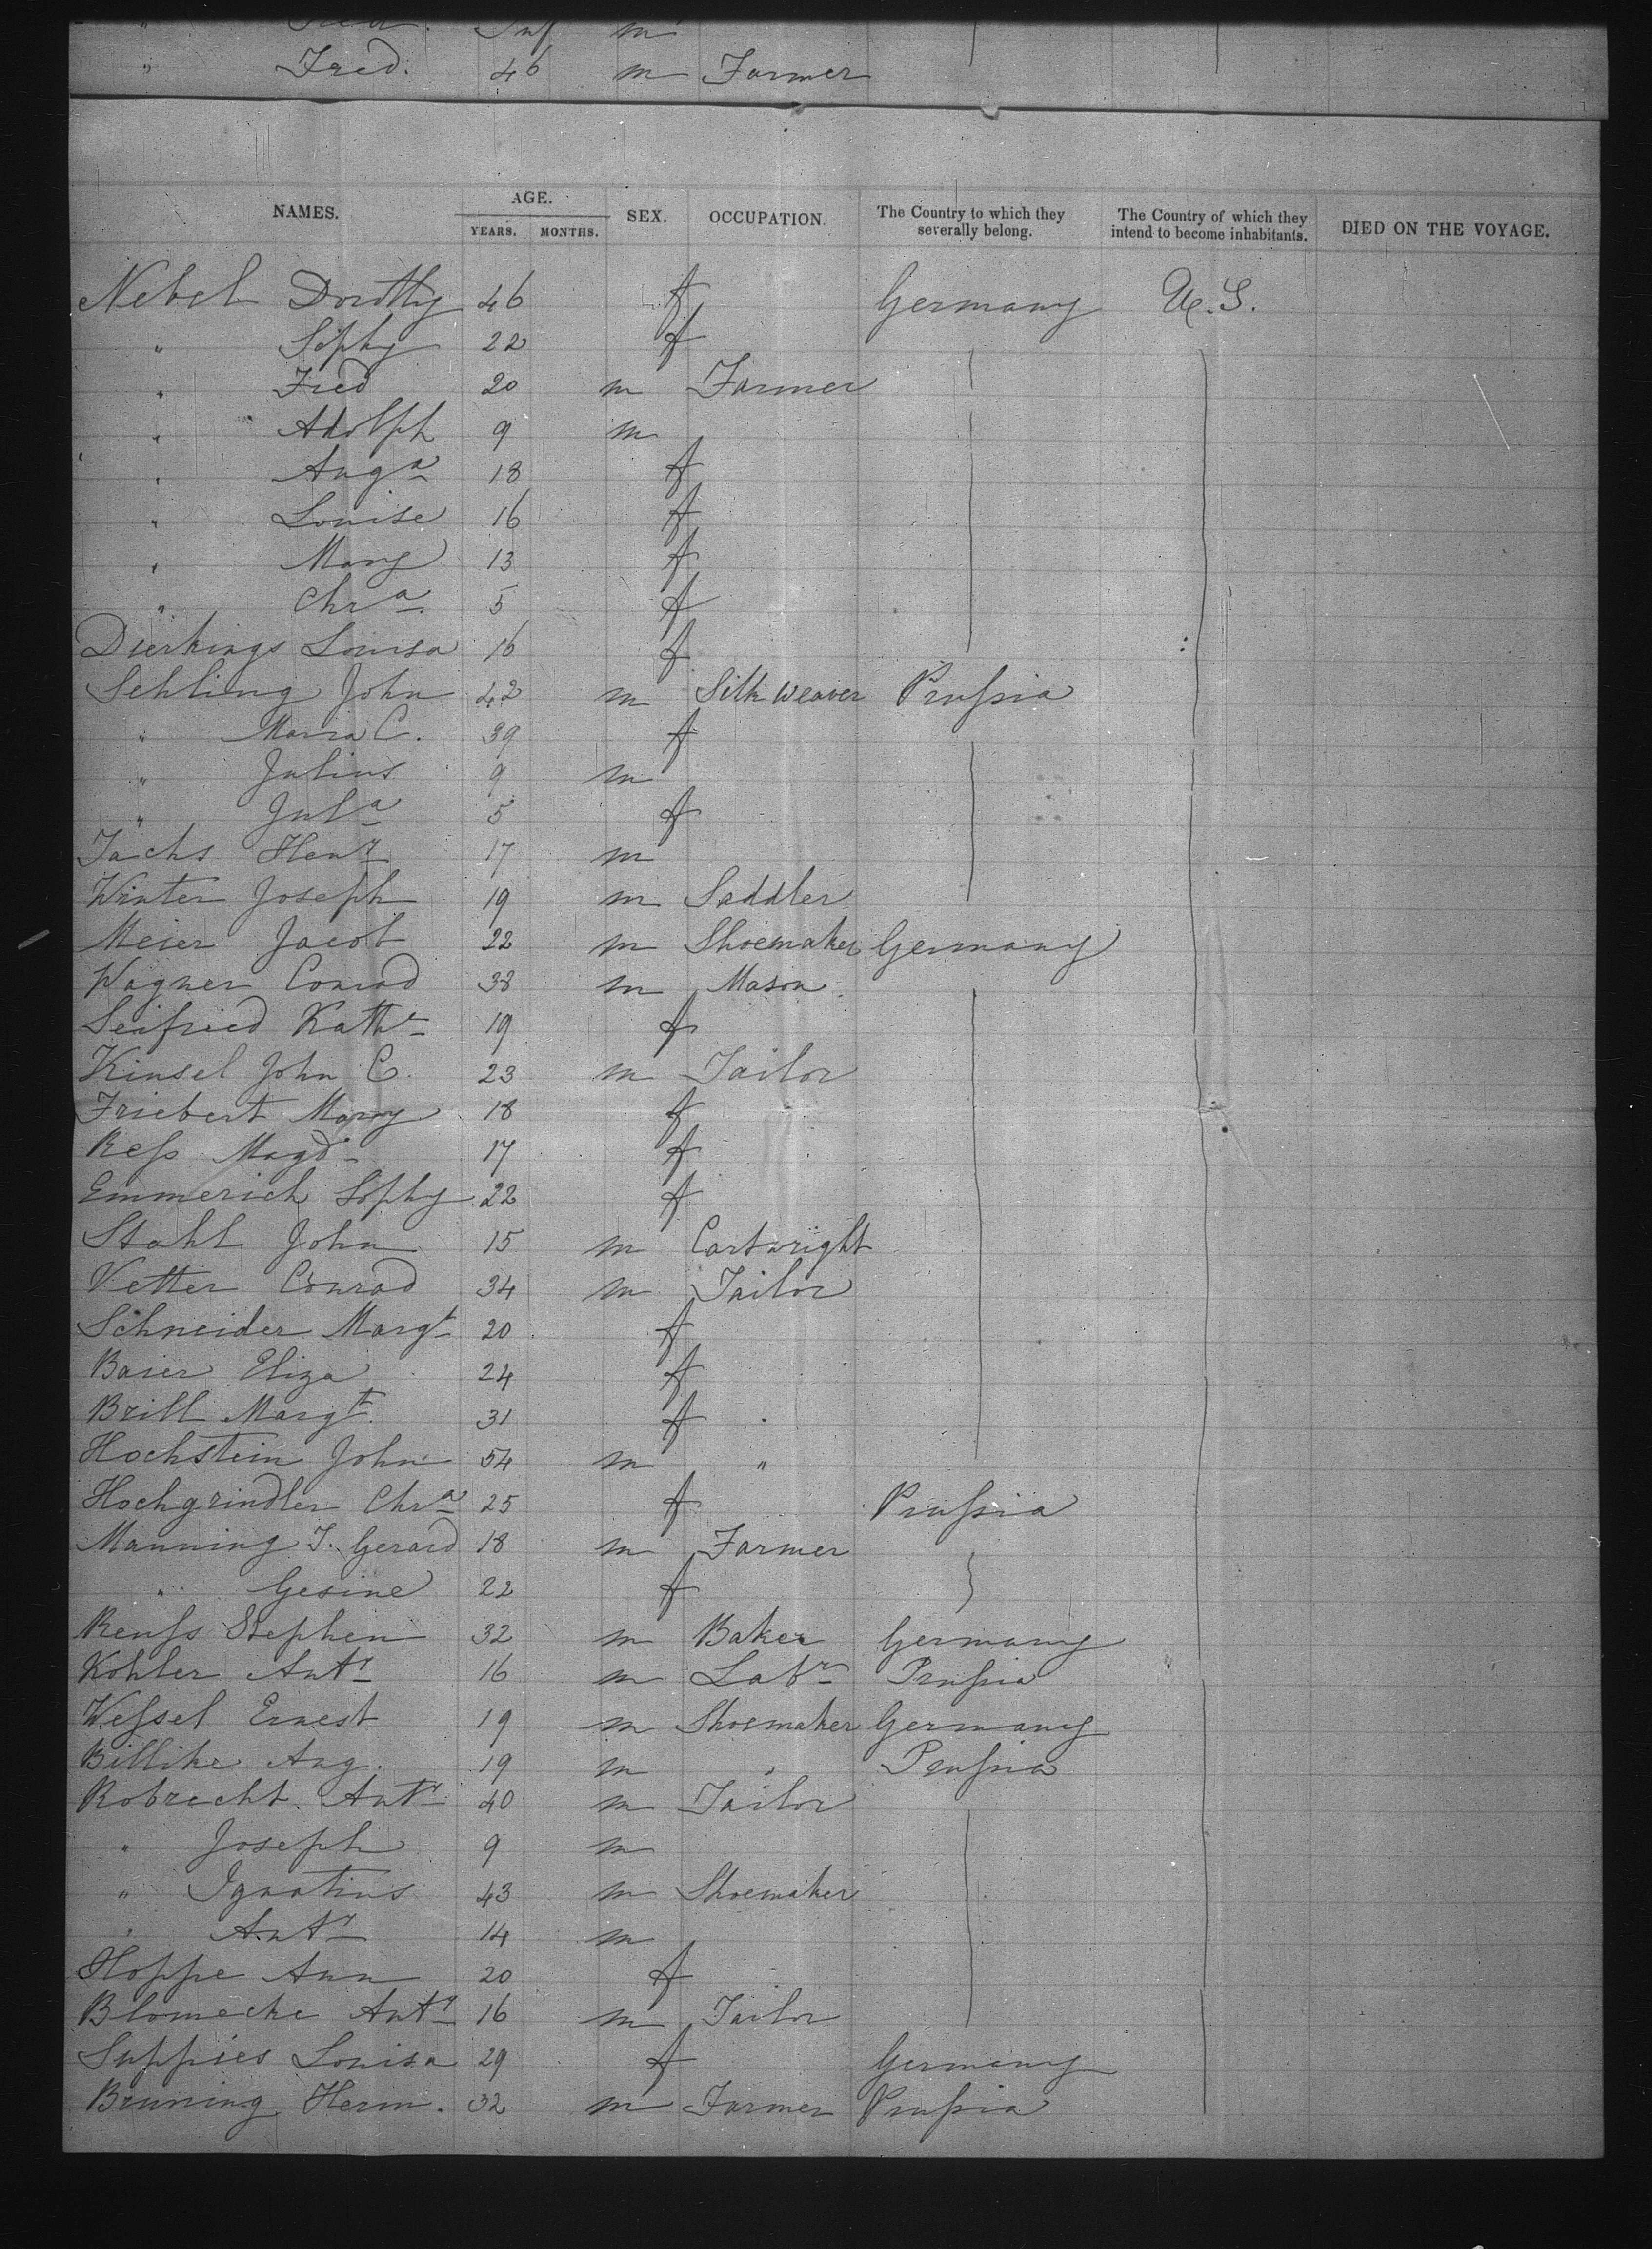 " Inf m
" Fred. 46 m Farmer
NAMES. AGE. YEARS. MONTHS. SEX. OCCUPATION. The Country to which they severally belong. The Country of which they intend to become inhabitants. DIED ON THE VOYAGE.
Nebel Dorothy 46 f Germany U.S.
" Sophy 22 f
" Fred 20 m Farmer
" Adolph 9 m
" Auga 18 f
" Louise 16 f
" Mary 13 f
" Chra 5 f
Dierkings Louisa 16 f
Sehling John 42 m Silk weaver Prussia
" Maria C. 39 f
" Julius 9 m
" Jula 5 f
Jachs Henr 17 m
Winter Joseph 19 m Saddler
Meier Jacob 22 m Shoemaker Germany
Wagner Conrad 38 m Mason
Seifried Kathe 19 f
Kinsel John C. 23 m Tailor
Friebert Mary 18 f
Ress Magd 17 f
Emmerich Sophy 22 f
Stahl John 15 m Cartwright
Vetter Conrad 34 m Tailor
Schneider Margt 20 f
Baier Eliza 24 f
Brill Margt. 31 f
Hochstein John 54 m "
Hochgrindler Chra 25 f Prussia
Manning J. Gerard 18 m Farmer
" Gesine 22 f
Reuss Stephen 32 m Baker Germany
Kohler Anty 16 m Labr Prussia
Wessel Ernest 19 m Shoemaker Germany
Billike Aug. 19 m " Prussia
Robrecht Anty 40 m Tailor
" Joseph 9 m
" Ignatius 43 m Shoemaker
" Anty 14 m
Hoppe Ann 20 f
Blomecke Anty 16 m Tailor
Suppies Louisa 29 f Germany
Bruning Herm. 32 m Farmer Prussia